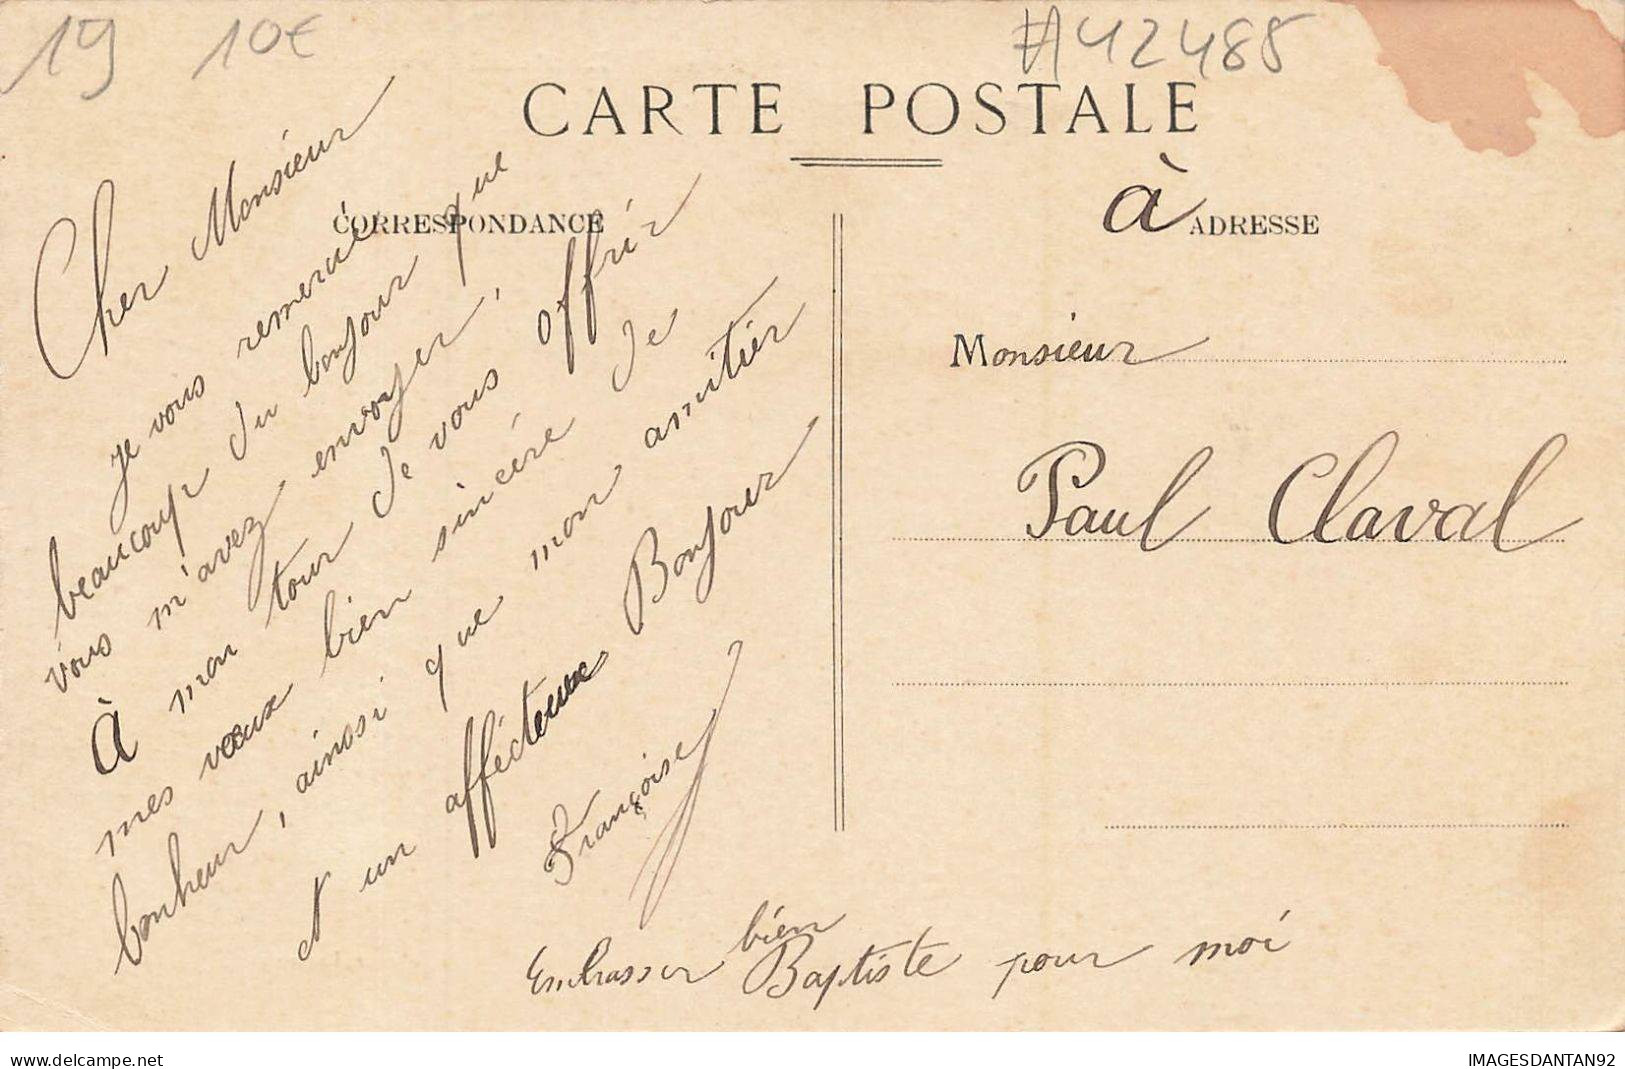 19 10€ #42488
CARTE POSTALE
CORRESPONDANCE
à ADRESSE
Cher Monsieur
je vous remercie
beaucoup du bonjour que
vous m'avez envoyer,
À mon tour je vous offrir
mes vœux bien sincère de
bonheur, ainsi que mon amitier
et un affécteux Bonjour
Françoise
Embrasser bien Baptiste pour moi
Monsieur
Paul Claval
www.delcampe.net
IMAGESDANTAN92